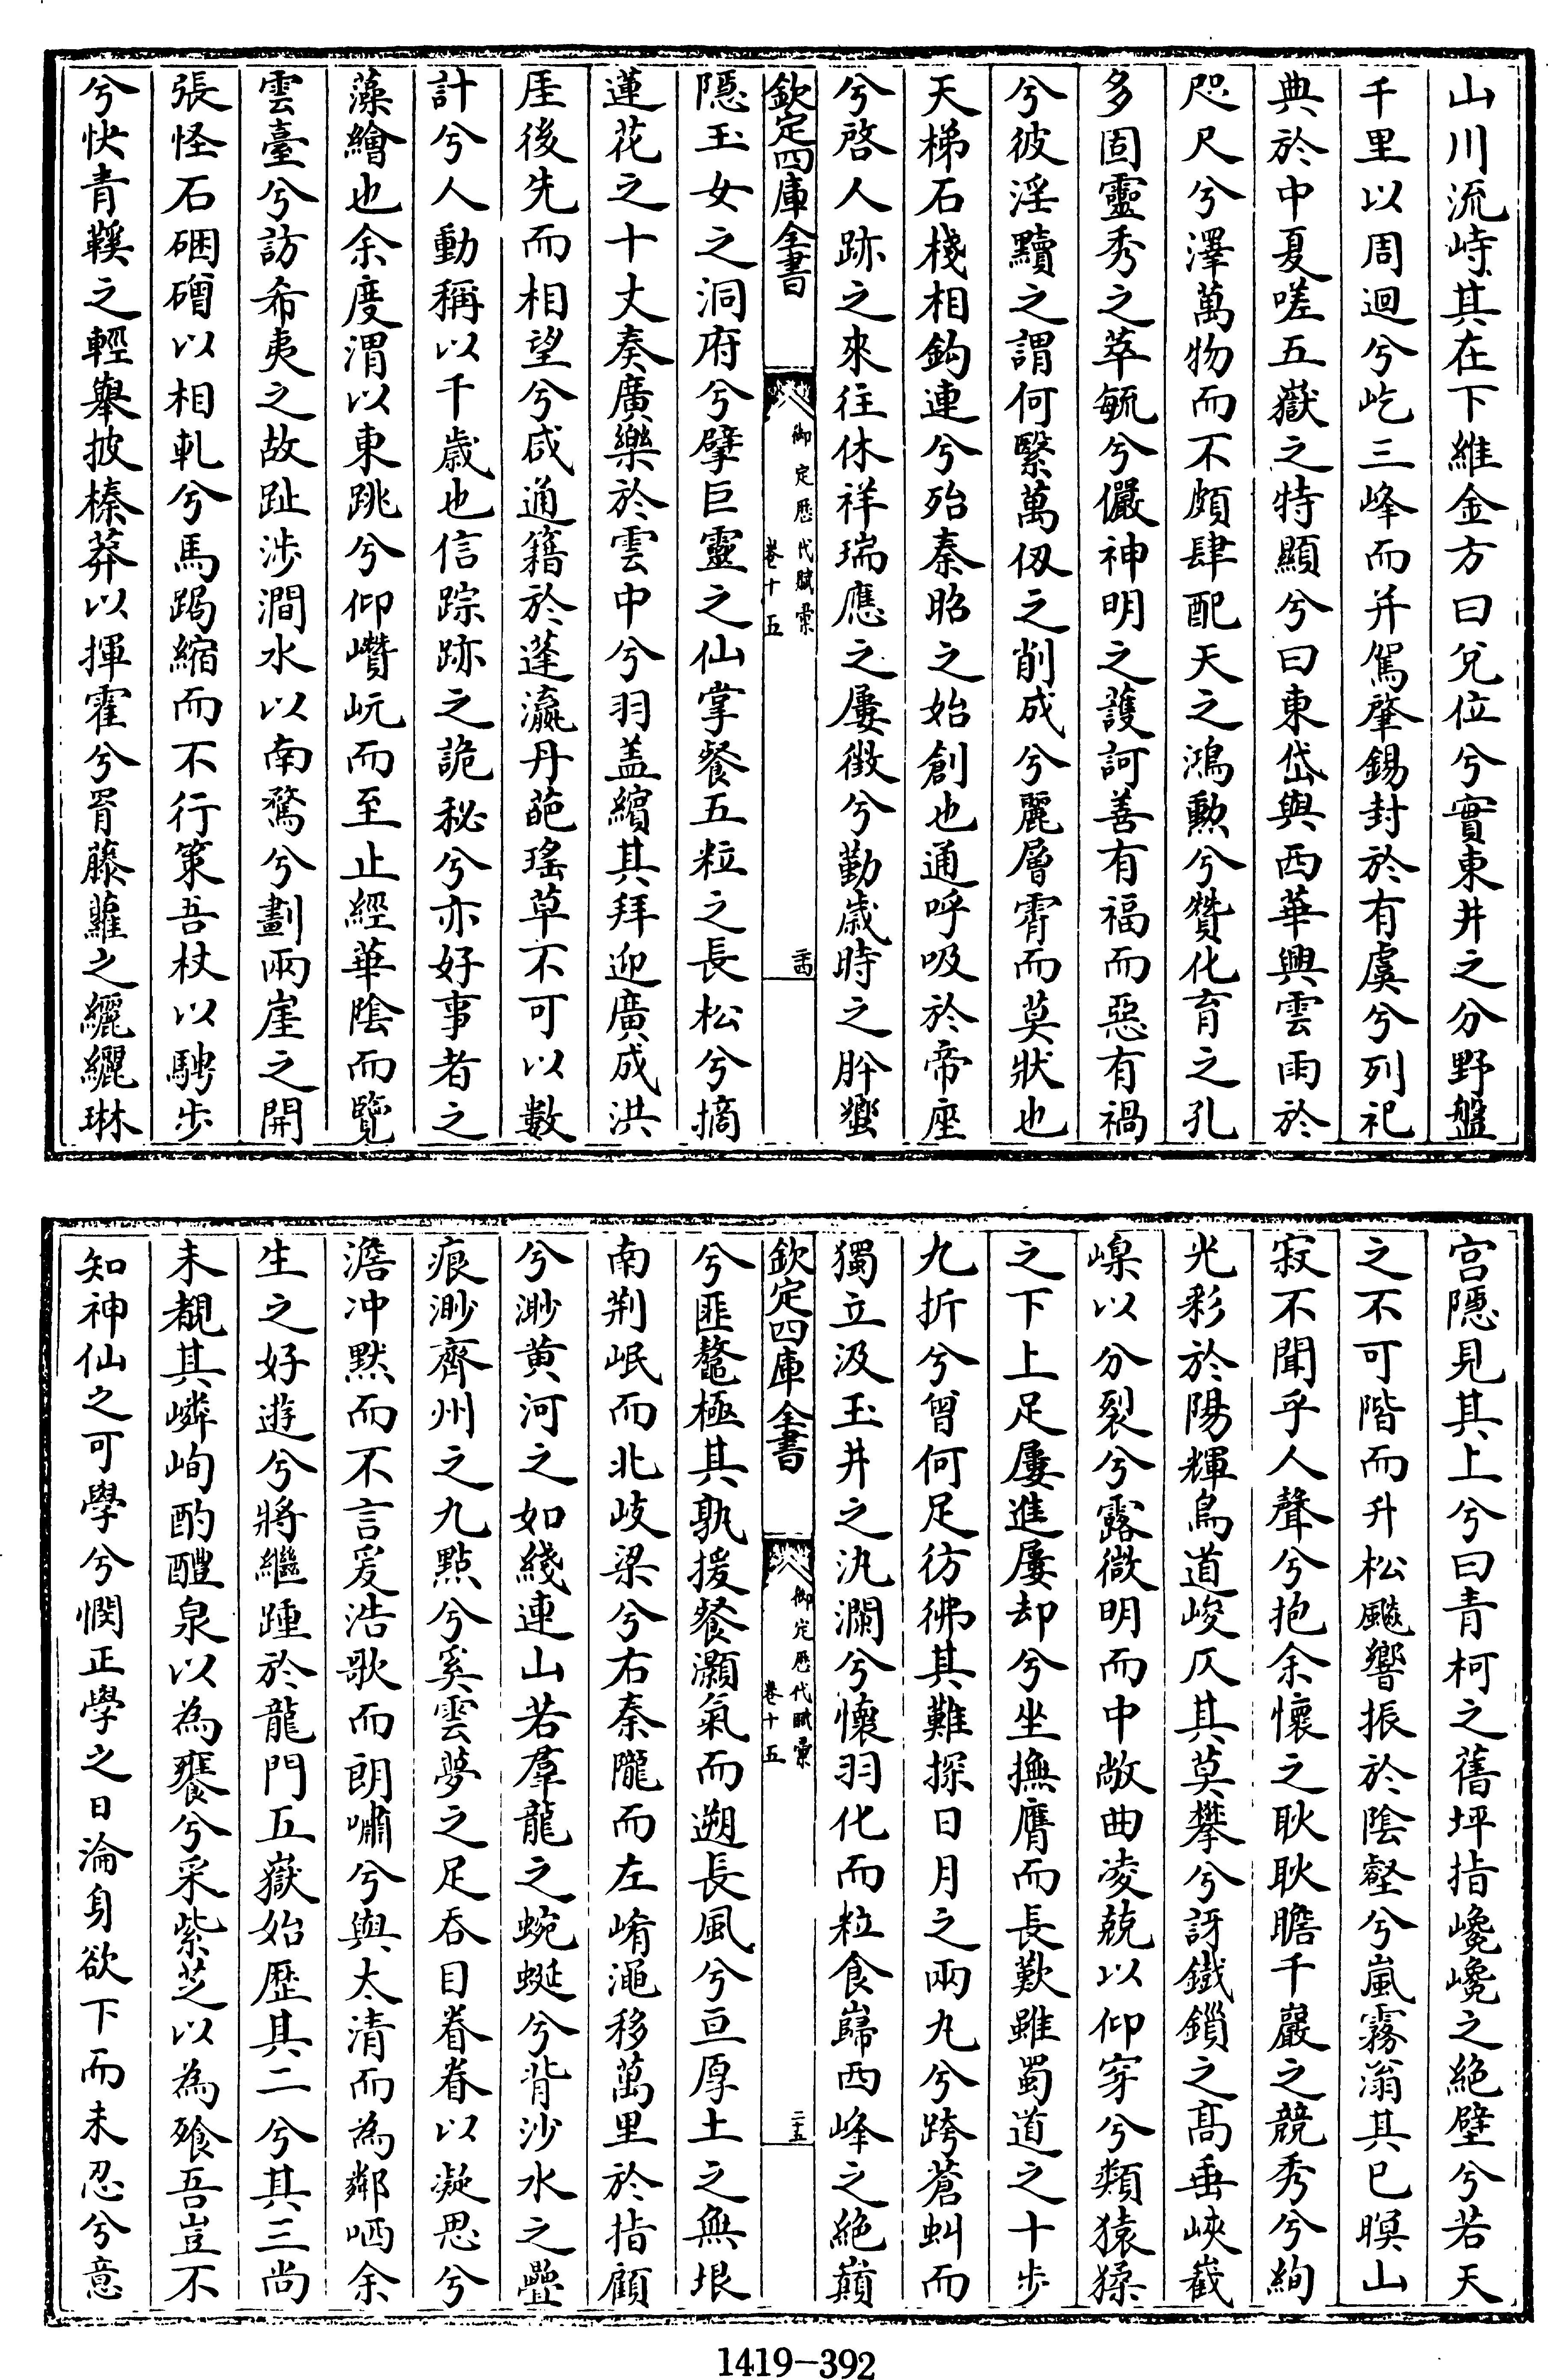 山川流峙其在下維金方曰兌位兮實東井之分野盤
千里以周迴兮屹三峰而并駕肇錫封於有虞兮列祀
典於中夏嗟五嶽之特顯兮曰東岱與西華興雲雨於
咫尺兮澤萬物而不頗肆配天之鴻勲兮贊化育之孔
多固靈秀之萃毓兮儼神明之護訶善有福而惡有禍
兮彼淫黷之謂何繄萬仭之削成兮麗層霄而莫狀也
天梯石棧相鈎連兮殆秦昭之始創也通呼吸於帝座
兮啓人跡之來往休祥瑞應之屢徴兮勤歲時之肸蠁
欽定四庫全書
御定歴代賦彙
卷十五
二十四
隠玉女之洞府兮擘巨靈之仙掌餐五粒之長松兮摘
蓮花之十丈奏廣樂於雲中兮羽盖繽其拜迎廣成洪
厓後先而相望兮咸通籍於蓬瀛丹葩瑤草不可以數
計兮人動稱以千歲也信踪跡之詭秘兮亦好事者之
藻繪也余度渭以東跳兮仰巑岏而至止經華陰而覽
雲臺兮訪希夷之故趾涉澗水以南騖兮劃兩崖之開
張怪石硱磳以相軋兮馬跼縮而不行策吾杖以騁步
兮快青鞵之輕舉披榛莽以揮霍兮罥藤蘿之纚纚琳
宫隠見其上兮曰青柯之舊坪指巉巉之絶壁兮若天
之不可階而升松颷響振於陰壑兮嵐霧滃其已暝山
寂不聞乎人聲兮抱余懐之耿耿瞻千巖之競秀兮絢
光彩於陽輝鳥道峻仄其莫攀兮訝鐵鎖之髙垂峽嶻
嵲以分裂兮露微明而中敞曲凌兢以仰穿兮類猿猱
之下上足屢進屢却兮坐撫膺而長歎雖蜀道之十步
九折兮曾何足彷彿其難探日月之兩丸兮跨蒼虬而
獨立汲玉井之氿瀾兮懐羽化而粒食巋西峰之絶巔
欽定四庫全書
御定歴代賦彙
卷十五
二十五
兮匪鼇極其孰援餐灝氣而遡長風兮亘厚土之無垠
南荆岷而北岐梁兮右秦隴而左崤澠移萬里於指顧
兮渺黄河之如綫連山若羣龍之蜿蜒兮背沙水之疊
痕渺齊州之九點兮奚雲夢之足吞目眷眷以凝思兮
澹冲黙而不言爰浩歌而朗嘯兮與太清而為鄰哂余
生之好遊兮將繼踵於龍門五嶽始歴其二兮其三尚
未覩其嶙峋酌醴泉以為饔兮采紫芝以為飱吾豈不
知神仙之可學兮憫正學之日淪身欲下而未忍兮意
1419-392